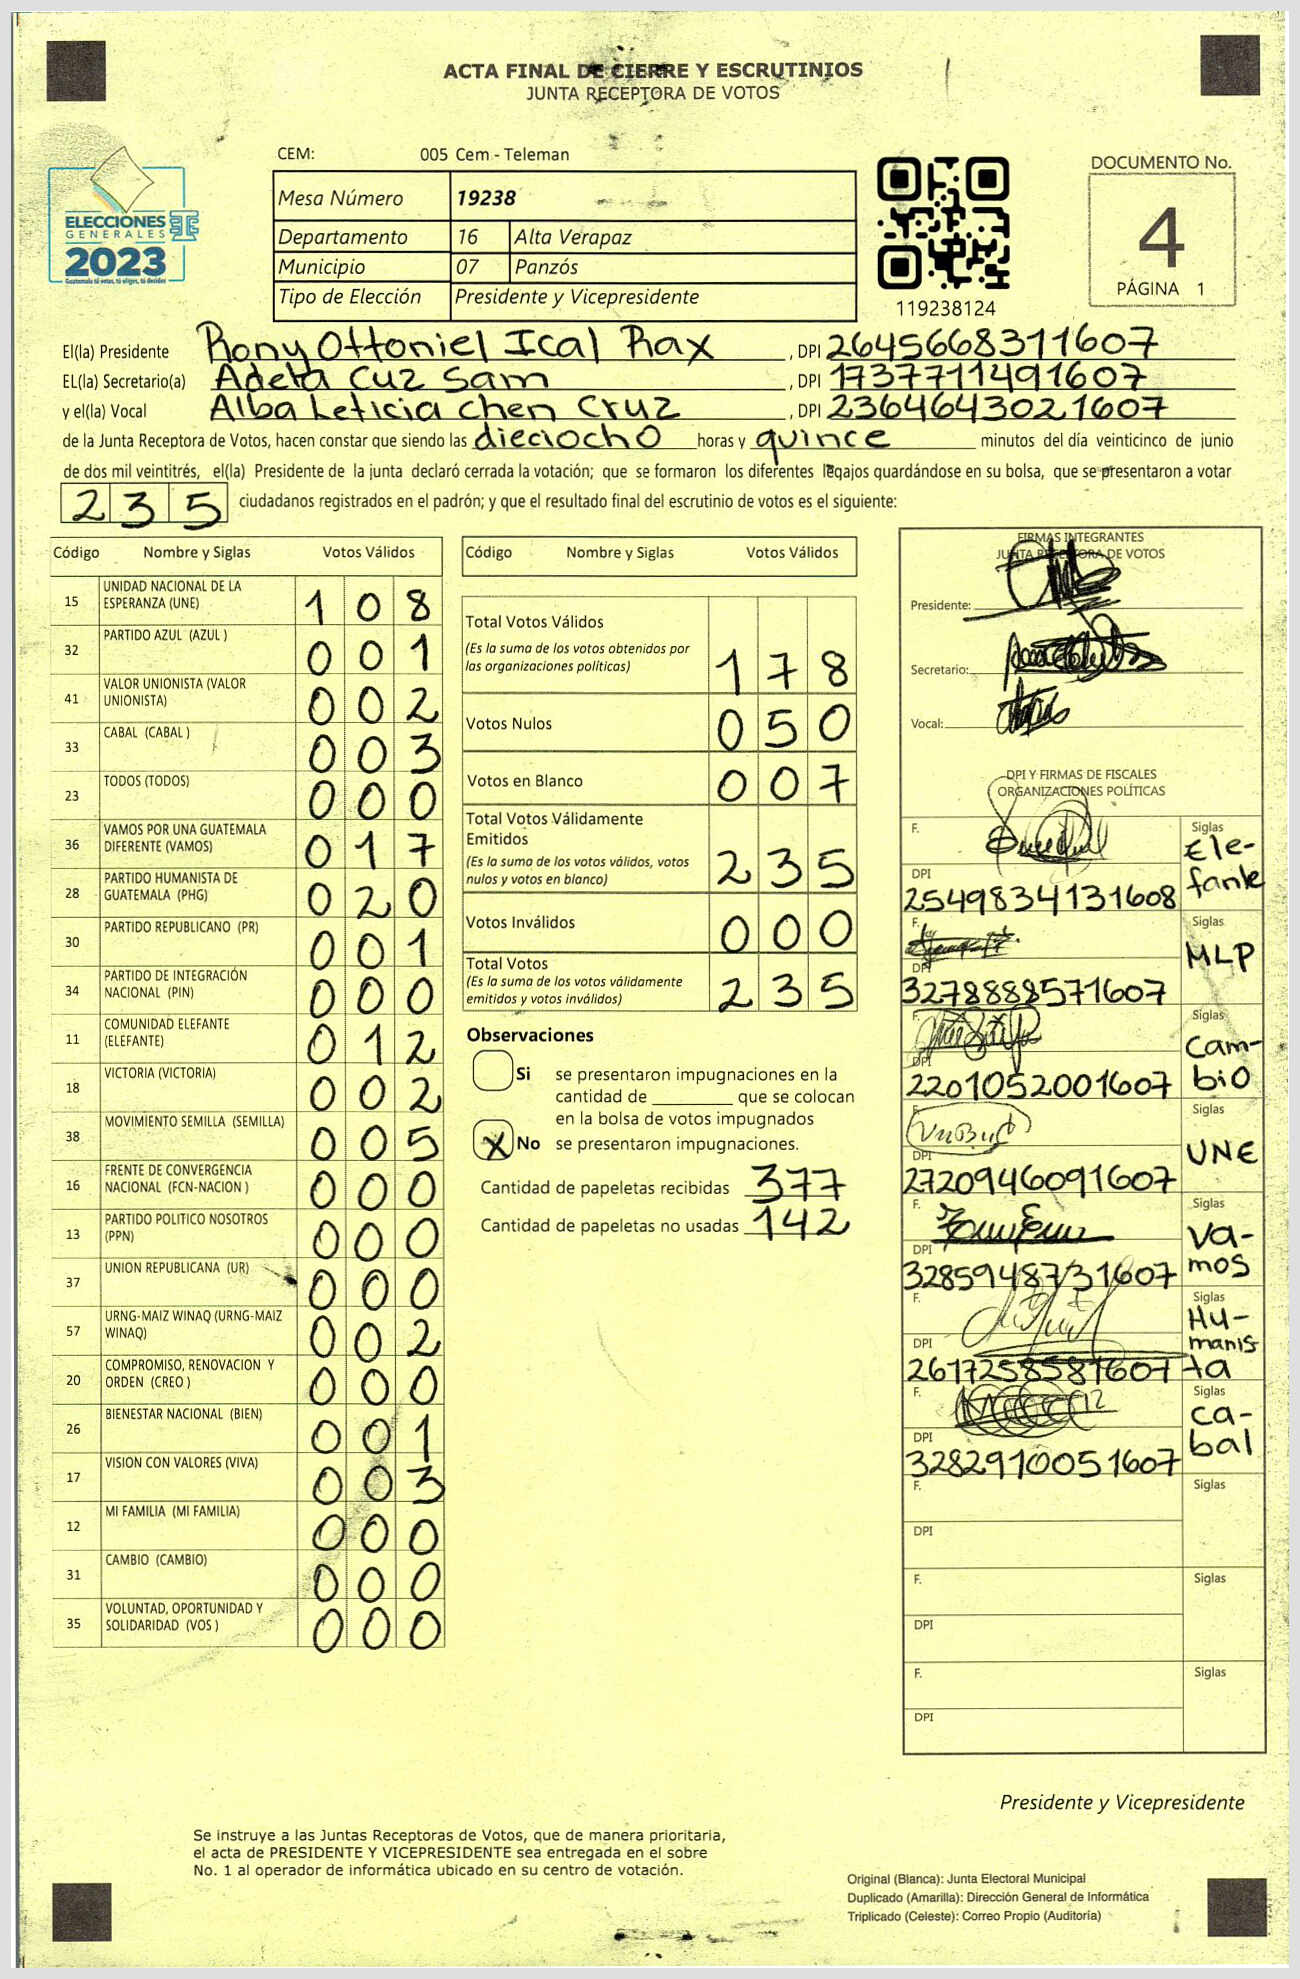 ACTA FINAL DE CIERRE Y ESCRUTINIOS
JUNTA RECEPTORA DE VOTOS
CEM: 005 Cem - Teleman
ELECCIONES
GENERALES
2023
Guatemala tú votas, tú eliges, tú decides
Mesa Número 19238
Departamento 16 Alta Verapaz
Municipio 07 Panzós
Tipo de Elección Presidente y Vicepresidente
119238124
DOCUMENTO No.
4
PÁGINA 1
El(la) Presidente Rony Ottoniel Ical Rax , DPI 2645668311607
EL(la) Secretario(a) Adela Cuz Sam , DPI 1737711491607
y el(la) Vocal Alba Leticia Chen Cruz , DPI 2364643021607
de la Junta Receptora de Votos, hacen constar que siendo las dieciocho horas y quince minutos del día veinticinco de junio
de dos mil veintitrés, el(la) Presidente de la junta declaró cerrada la votación; que se formaron los diferentes legajos quardándose en su bolsa, que se presentaron a votar
235 ciudadanos registrados en el padrón; y que el resultado final del escrutinio de votos es el siguiente:
Código Nombre y Siglas Votos Válidos
15 UNIDAD NACIONAL DE LA ESPERANZA (UNE) 108
32 PARTIDO AZUL (AZUL ) 001
41 VALOR UNIONISTA (VALOR UNIONISTA) 002
33 CABAL (CABAL ) 003
23 TODOS (TODOS) 000
36 VAMOS POR UNA GUATEMALA DIFERENTE (VAMOS) 017
28 PARTIDO HUMANISTA DE GUATEMALA (PHG) 020
30 PARTIDO REPUBLICANO (PR) 001
34 PARTIDO DE INTEGRACIÓN NACIONAL (PIN) 000
11 COMUNIDAD ELEFANTE (ELEFANTE) 012
18 VICTORIA (VICTORIA) 002
38 MOVIMIENTO SEMILLA (SEMILLA) 005
16 FRENTE DE CONVERGENCIA NACIONAL (FCN-NACION ) 000
13 PARTIDO POLITICO NOSOTROS (PPN) 000
37 UNION REPUBLICANA (UR) 000
57 URNG-MAIZ WINAQ (URNG-MAIZ WINAQ) 002
20 COMPROMISO, RENOVACION Y ORDEN (CREO ) 000
26 BIENESTAR NACIONAL (BIEN) 001
17 VISION CON VALORES (VIVA) 003
12 MI FAMILIA (MI FAMILIA) 000
31 CAMBIO (CAMBIO) 000
35 VOLUNTAD, OPORTUNIDAD Y SOLIDARIDAD (VOS ) 000
Código Nombre y Siglas Votos Válidos
Total Votos Válidos
(Es la suma de los votos obtenidos por
las organizaciones políticas) 178
Votos Nulos 050
Votos en Blanco 007
Total Votos Válidamente
Emitidos
(Es la suma de los votos válidos, votos
nulos y votos en blanco) 235
Votos Inválidos 000
Total Votos
(Es la suma de los votos válidamente
emitidos y votos inválidos) 235
Observaciones
Si se presentaron impugnaciones en la
cantidad de ________ que se colocan
en la bolsa de votos impugnados
X No se presentaron impugnaciones.
Cantidad de papeletas recibidas 377
Cantidad de papeletas no usadas 142
FIRMAS INTEGRANTES
JUNTA RECEPTORA DE VOTOS
Presidente:
Secretario:
Vocal:
DPI Y FIRMAS DE FISCALES
ORGANIZACIONES POLÍTICAS
F. Siglas Ele-
fante
DPI 2549834131608
F. Siglas MLP
DPI 3278888571607
F. Siglas Cam-
bio
DPI 2201052001607
F. Siglas UNE
DPI 2720946091607
F. Siglas Va-
mos
DPI 3285948731607
F. Siglas Hu-
manis
ta
DPI 2617258581607
F. Siglas Ca-
bal
DPI 3282910051607
F. Siglas
DPI
F. Siglas
DPI
F. Siglas
DPI
Presidente y Vicepresidente
Se instruye a las Juntas Receptoras de Votos, que de manera prioritaria,
el acta de PRESIDENTE Y VICEPRESIDENTE sea entregada en el sobre
No. 1 al operador de informática ubicado en su centro de votación.
Original (Blanca): Junta Electoral Municipal
Duplicado (Amarilla): Dirección General de Informática
Triplicado (Celeste): Correo Propio (Auditoría)